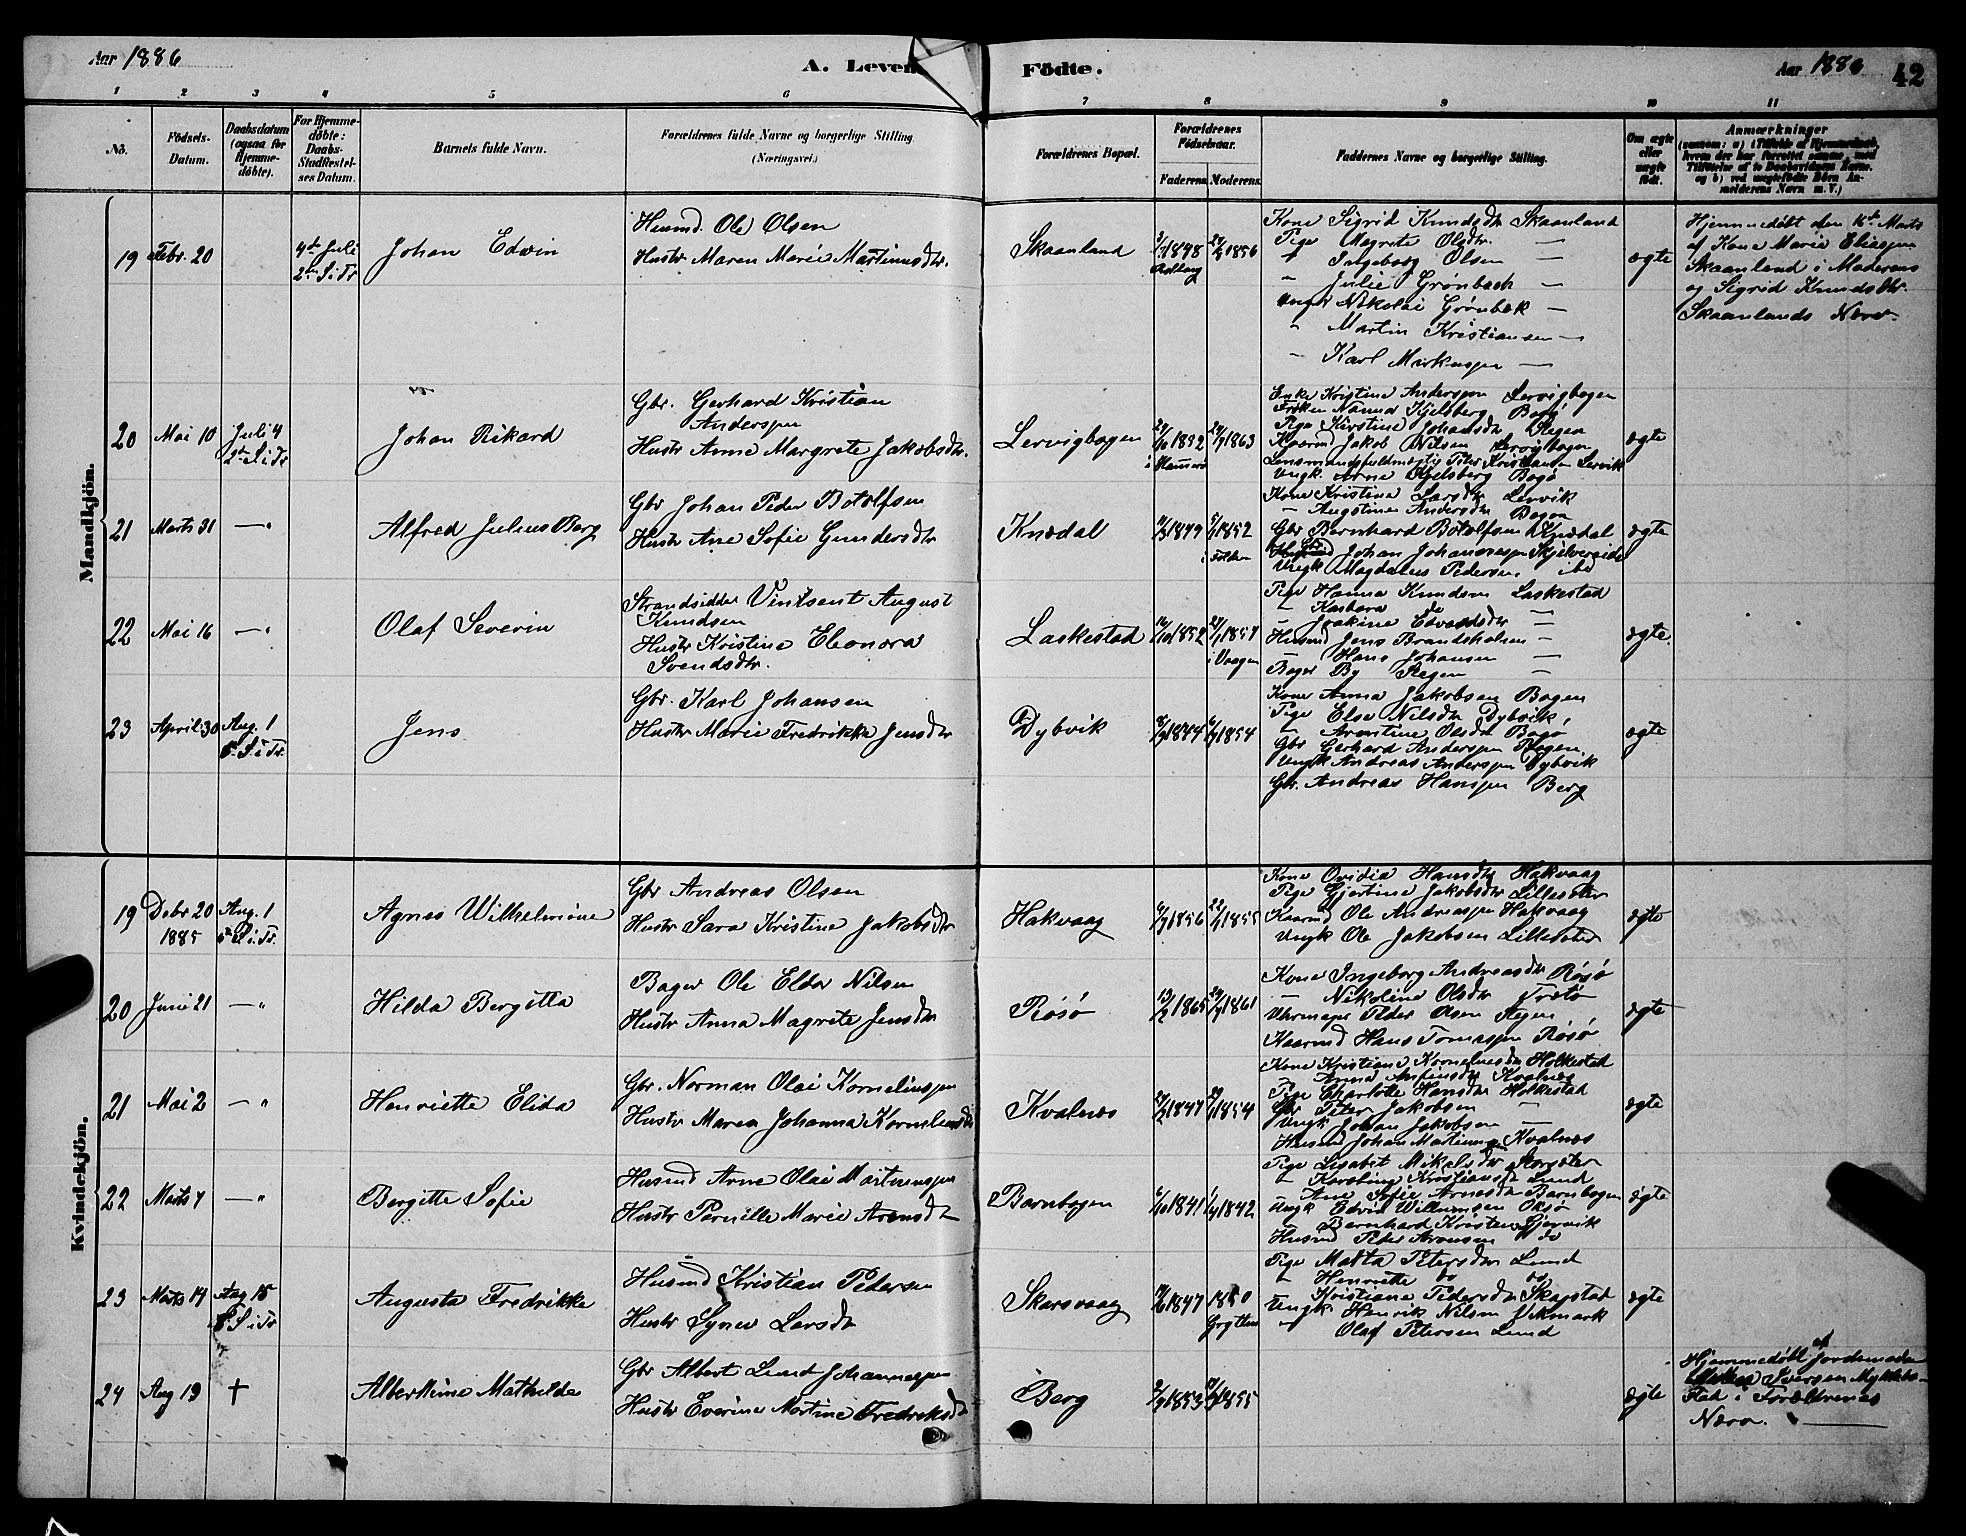 Aar 1886
A. Leven
Födte.
Aar 1886
42
1 2 3 4 5 6 7 8 9 10 11
No.
Födsels-
Datum.
Daabsdatum
(ogsaa for
Hjemme-
döbte).
For Hjemme-
döbte:
Daabs-
Stadfæstel-
ses Datum.
Barnets fulde Navn.
Forældrenes fulde Navne og borgerlige Stilling
(Næringsvei.)
Forældrenes Bopæl.
Forældrenes
Födselsaar.
Faderens. Moderens.
Faddernes Navne og borgerlige Stilling.
Om ægte
eller
uægte
födt.
Anmærkninger
Mandkjön.
19 Febr. 20
4de Juli
2den S. i Tr.
Johan Edvin
Husmd. Ole Olsen
Hustr Maren Marie Martinusdtr.
Skaanland
1848
1856
Kone Sigrid Knudsdtr Skaanland
Pige Magrete Olsdtr. —
" Ingeborg Olsen —
" Julie Grønbech —
Ungk Nikolai Grønbæk —
" Martin Kristiansen —
" Karl Markussen —
ægte
Hjemmedøbt den 16de Marts
af Kone Marie Eliassen
Skaanland i Moderens
og Sigrid Knudsdtr.
Skaanlands Nærv.
20 Mai 10
Juli 4
2den S. i Tr
Johan Rikard
Gbr. Gerhard Kristian
Anderssen
Hustr Anne Margrete Jakobsdtr.
Lervigbogen
1852
1863
Enke Kristine Anderssen Lervigbogen
Frøken Nanna Kjelsberg Bogø
Pige Kirstine Johansdtr Regen
Kaarmd Jakob Nilsen Lervigbogen
Lensmandsfuldmægtig Peter Kristiansen Lervik
Ungk. Arne Kjelsberg Bogø
ægte
21 Marts 31 — "
Alfred Julius Berg
Gbr Johan Peder Botolfsen
Hustr Ane Sofie Gundersdtr
Knædal
1849
1852
i Folden
Kone Kristine Larsdtr Lervik
" Augstine Andersdtr Bogen
Gbr Bernhard Botolfsen Knædal
Johan Johannessen Skjelvereide
Ungk Magdalus Pedersen ibd
ægte
22 Mai 16 — "
Olaf Severin
Strandsidder Vintsent August
Knudsen
Hustr Kristine Eleonora
Svendsdtr.
Laskestad
1852
i Vaagen
Pige Hanna Knudsen Laskestad
" Kasbara do —
" Joakine Edvardsdtr —
Husmd Jens Brandsholsen —
" Hans Johansen —
Bager By Regen
ægte.
23 April 30
Aug. 1
6. S. i Tr.
Jens
Gbr. Karl Johansen
Hustr Marie Fredrikke Jensdtr
Dybvik
1844
1854
Kone Anna Jakobsen Bogen
Pige Else Nilsdtr Dybvik
" Arentine Olsdtr Bogø
Gbr Gerhard Anderssen Bogen
Ungk Andreas Anderssen Dybvik
Gbr. Andreas Hanssen Berg
ægte
Kvindekjön.
19 Debr 20
1885
Aug. 1
6. S. i Tr.
Agnes Wilhelmine
Gbr Andreas Olsen
Hustr Sara Kristine Jakobsdtr
Hakvaag
1856
1855
Kone Ovidia Hansdtr Hakvaag
Pige Gjertine Jakobsdtr Lillesæter
Kaarmd Ole Andreassen Hakvaag
Ungk Ole Jakobsen Lillesæter
ægte
20 Juni 21 — "
Hilda Bergitta
Bager Ole Elda Nilsen
Hustr Anna Magrete Jensdtr
Røsø
1865
1861
Kone Ingeborg Andreasdtr Røsø
" Nikoline Olsdtr Tostø
Uhrmager Peder Olsen Regen
Kaarmd Hans Tomassen Røsø
ægte
21 Mai 2 — "
Henriette Elida
Gbr. Norman Olai Korneliussen
Hustr Maren Johanna Korneliusdtr
Kvalnæs
1847
1854
Kone Kristiane Korneliusdtr Holkestad
Pige Charlotte Hansdtr Holkestad
Gbr Peter Jakobsen —
Ungk Johan Jakobsen —
Husmd Johan Martinus. Kvalnæs
ægte
22 Marts 7 — "
Bergitte Sofie
Husmd Arne Olai Martinussen
Hustr Pernille Marie Arensdtr
Barnbogen
1841
1842
Pige Lisabet Mikelsdtr Storsæter
" Karoline Kristiansdtr Lund
" Ane Sofie Arnesdtr Barnbogen
Ungk Edvin Willumsen Oksø
" Bernhard Kristensen Gjervik
Husmd Peder Aronsen do
ægte
23 Marts 14
Aug 15
8. S. i Tr
Augusta Fredrikke
Husmd Kristian Pedersen
Hustr Synev Larsdtr
Skarsvaag
1847
1850
Grytten
Pige Marta Petersdtr Lund
" Henriette do do
" Kristiane Pedersdtr Skagstad
Ungk Henrik Nilsen Vikmark
" Olaf Petersen Lund
ægte
24 Aug 19 †
Albertkine Mathilde
Gbr Albert Lund Johannessen
Hustr Everine Martine Fredriksdtr
Berg
1853
1855
ægte
Hjemmedøbt af Jordemoder
Iversen Myklebo-
stad i Forældrenes
Nærv.